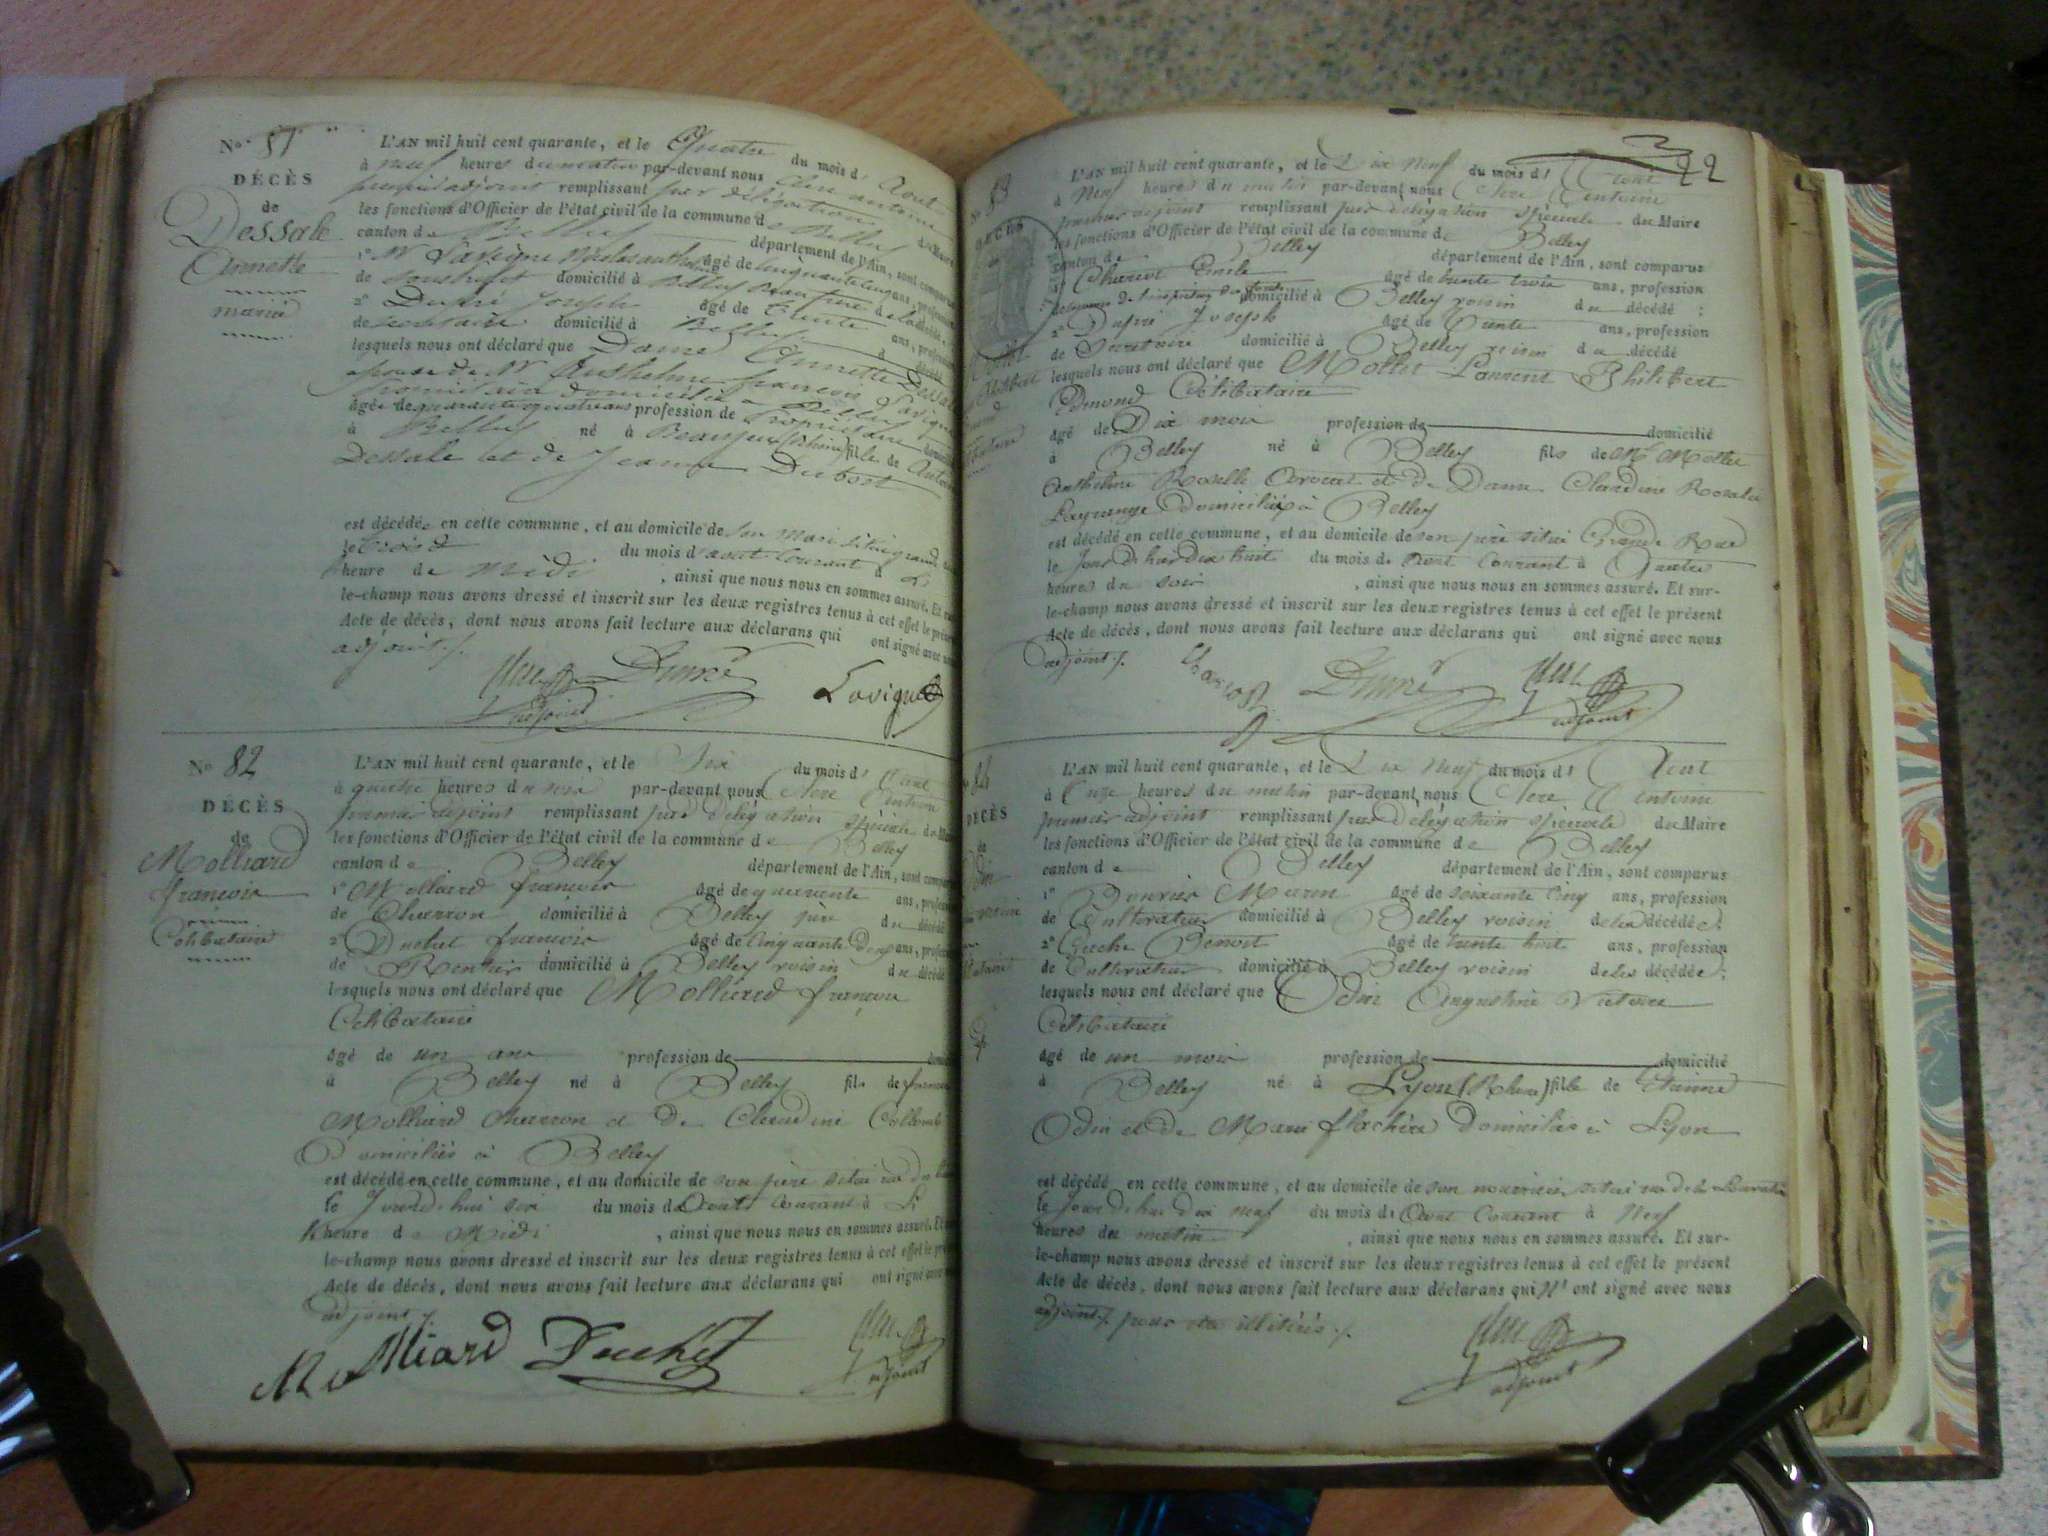 No. 81
DÉCÈS
de
Dessale
Annette
mariée
L'AN mil huit cent quarante, et le Quatre du mois d'Aout
à neuf heures du matin par-devant nous Clerc antoine
premier adjoint remplissant par délégation du Maire
les fonctions d'Officier de l'état civil de la commune de Belley
canton de Belley département de l'Ain, sont comparus
1° Mr Lavigne agé de cinquante cinq ans, profession
de domicilié à Belley Beau frère de la décédée
2° Dupré Joseph agé de Trente ans, profession
de secretaire domicilié à Belley d décédé
lesquels nous ont déclaré que Dame Annette Dessale
épouse de Mr Anthelme françois Lavigne
propriétaire domicilié à Belley
agée de quarante quatre ans profession de Propriétaire domicilié
à Belley né à Beaujeu (Rhône) fille de Antoine
Dessale et de Jeanne Dubost
est décédée en cette commune, et au domicile de son mari situé grande rue
le trois du mois d'aout Courant à
heure de midi , ainsi que nous nous en sommes assuré. Et sur-
le-champ nous avons dressé et inscrit sur les deux registres tenus à cet effet le présent
Acte de décès, dont nous avons fait lecture aux déclarans qui ont signé avec nous
adjoint ./.
Clerc Dupré Lavigne
adjoint
No 82
DÉCÈS
de
Molliard
françois
Célibataire
L'AN mil huit cent quarante, et le Six du mois d'Aout
à quatre heures du soir par-devant nous Clerc Antoine
premier adjoint remplissant par délégation spéciale du Maire
les fonctions d'Officier de l'état civil de la commune de Belley
canton de Belley département de l'Ain, sont comparus
1° Molliard françois agé de quarante ans, profession
de Charron domicilié à Belley père du décédé
2° Duchet françois agé de Cinquante Deux ans, profession
de Rentier domicilié à Belley voisin du décédé
lesquels nous ont déclaré que Molliard françois
Célibataire
agé de un an profession de domicilié
à Belley né à Belley fils de françois
Molliard Charron et de Claudine Collomb
Domiciliés à Belley
est décédé en cette commune, et au domicile de son père situé rue du
le Jourd'hui six du mois d'Aout Courant à
heure de Midi , ainsi que nous nous en sommes assuré. Et
le-champ nous avons dressé et inscrit sur les deux registres tenus à cet effet le présent
Acte de décès, dont nous avons fait lecture aux déclarans qui ont signé avec
adjoint ./.
Molliard Duchet Clerc
adjoint
22
No 83
DÉCÈS
L'AN mil huit cent quarante, et le Dix Neuf du mois d'Aout
à Neuf heures du matin par-devant nous Clerc Antoine
premier adjoint remplissant par délégation spéciale du Maire
les fonctions d'Officier de l'état civil de la commune de Belley
canton de Belley département de l'Ain, sont comparus
1° Charcot Emile agé de trente trois ans, profession
domicilié à Belley voisin du décédé ;
2° Dupré Joseph agé de Trente ans, profession
de Secretaire domicilié à Belley voisin du décédé
lesquels nous ont déclaré que Mollet Laurent Philibert
Edmond Célibataire
agé de Dix mois profession de domicilié
à Belley né à Belley fils de Mr Mollet
Anthelme Roselle Avocat et de Dame Claudine Rosalie
Lagrange domiciliés à Belley
est décédé en cette commune, et au domicile de son père situé Grande Rue
le Jour d'hier dix huit du mois d'Aout Courant à Quatre
heures du soir , ainsi que nous nous en sommes assuré. Et sur-
le-champ nous avons dressé et inscrit sur les deux registres tenus à cet effet le présent
Acte de décès, dont nous avons fait lecture aux déclarans qui ont signé avec nous
adjoint ./.
Dupré Clerc
adjoint
84
DÉCÈS
de
Odin
L'AN mil huit cent quarante, et le Dix Neuf du mois d'Aout
à Onze heures du matin par-devant nous Clerc Antoine
premier adjoint remplissant par délégation spéciale du Maire
les fonctions d'Officier de l'état civil de la commune de Belley
canton de Belley département de l'Ain, sont comparus
1° Bouvier Marin agé de soixante Cinq ans, profession
de Cultivateur domicilié à Belley voisin de la décédée
2° Guche Benoit agé de trente huit ans, profession
de Cultivateur domicilié à Belley voisin de la décédée ;
lesquels nous ont déclaré que Odin Augustine Victoire
Célibataire
agé de un mois profession de domicilié
à Belley né à Lyon (Rhône) fille de Etienne
Odin et de Marie flachère Domiciliés à Lyon
est décédé en cette commune, et au domicile de son nourricier situé rue de la
le Jour d'hui dix neuf du mois d'Aout Courant à Neuf
heures du matin , ainsi que nous nous en sommes assuré. Et sur-
le-champ nous avons dressé et inscrit sur les deux registres tenus à cet effet le présent
Acte de décès, dont nous avons fait lecture aux déclarans qui N' ont signé avec nous
adjoint ./. pour être illitérés ./.
Clerc
adjoint